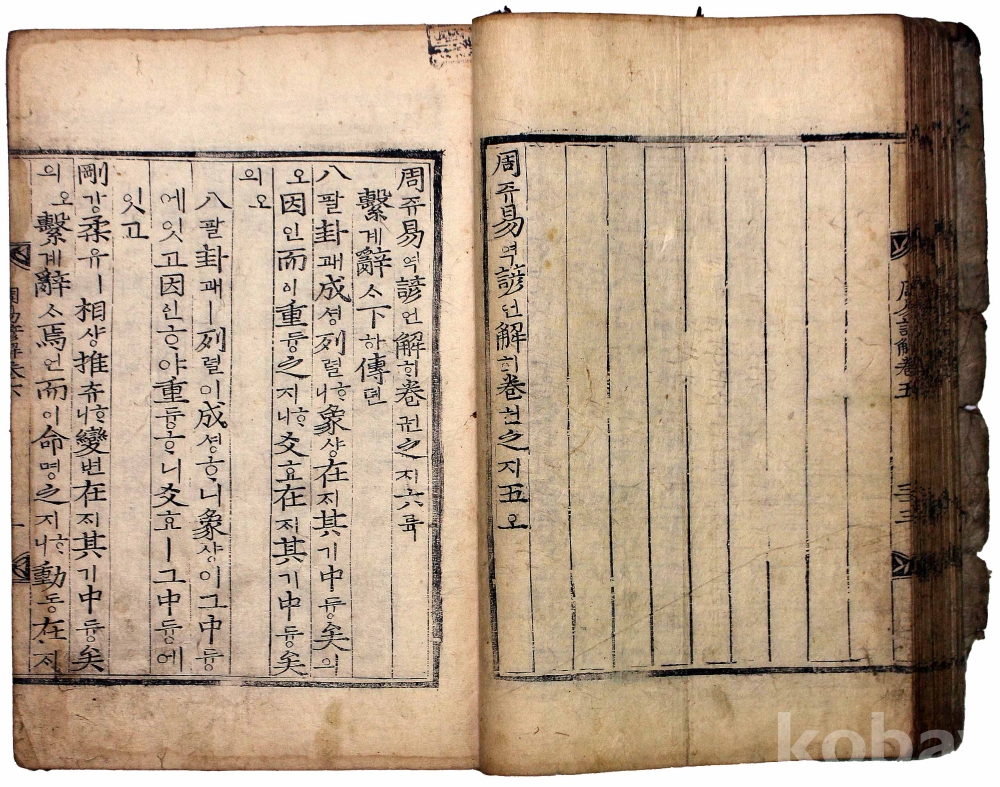 周易諺解卷五
周쥬易역諺언解ᄒᆡ卷권之지五오
周쥬易역諺언解ᄒᆡ卷권之지六륙
繫계辭ᄉᆞ下하傳뎐
八팔卦괘成셩列렬ᄒᆞ니象샹在ᄌᆡ其기中듕矣의
오因인而이重듕之지ᄒᆞ니爻효在ᄌᆡ其기中듕矣
의오
八팔卦괘ㅣ列렬이成셩ᄒᆞ니象샹이그中듕
에잇고因인ᄒᆞ야重듕ᄒᆞ니爻효ㅣ그中듕에
잇고
剛강柔유ㅣ相샹推츄ᄒᆞ니變변在ᄌᆡ其기中듕矣
의오繫계辭ᄉᆞ焉언而이命명之지ᄒᆞ니動동在ᄌᆡ
周易諺解卷六
kobay